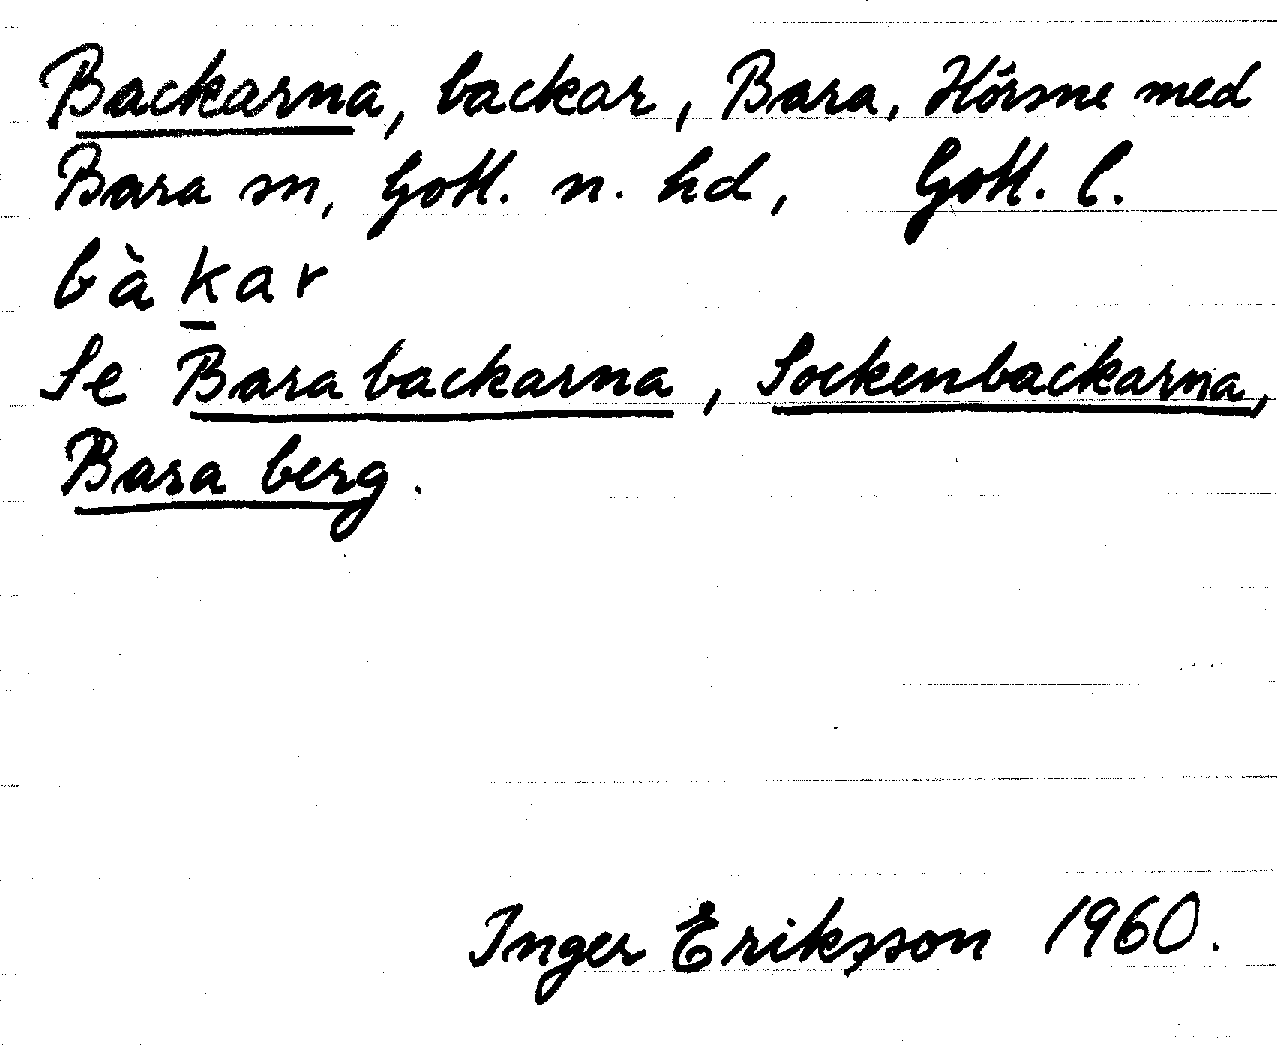 Backarna, backar, Bara, Hörsne med
Bara sn, Gotl. n. hd, Gotl. l.
bàkar
Se Bara backarna, Sockenbackarna,
Bara berg.
Inger Eriksson 1960.